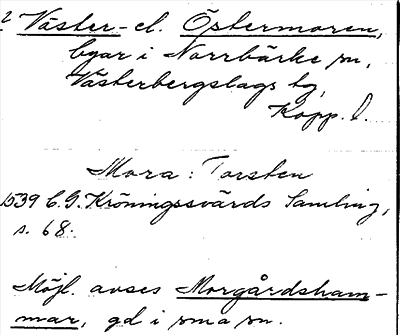 ? Väster- el. Östermoren,
byar i Norrbärke sn,
Västerbergslags tg,
Kopp. l.
Mora: Torsten
1539 C.G. Kröningssvärds Samling,
s. 68.
Möjl. avses Morgårdsham-
mar, gd i sma sn.